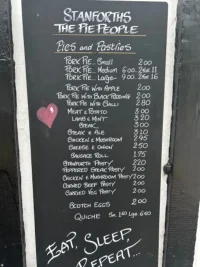 STANFORTHS
THE PIE PEOPLE
Pies and Pastries
PORK PIE.. Small 2.00
PORK PIE.. Medium 6.00
PORK PIE.. Large 9.00
PORK PIE WITH APPLE 2.00
PORK PIE WITH BLACK PUDDING 2.00
PORK PIE WITH CHILLI 2.80
MEAT & POTATO 3.00
LAMB & MINT 3.20
STEAK 3.00
STEAK & ALE 3.10
CHICKEN & MUSHROOM 2.95
CHEESE & ONION 2.50
SAUSAGE ROLL 1.75
STANFORTH PASTY 2.20
PEPPERED STEAK PASTY 2.00
CHICKEN & MUSHROOM PASTY 2.00
CORNED BEEF PASTY 2.00
CURRIED VEG PASTY 2.00
SCOTCH EGGS 2.00
QUICHE Sm 1.80 Lge 6.60
EAT, SLEEP
REPEAT...